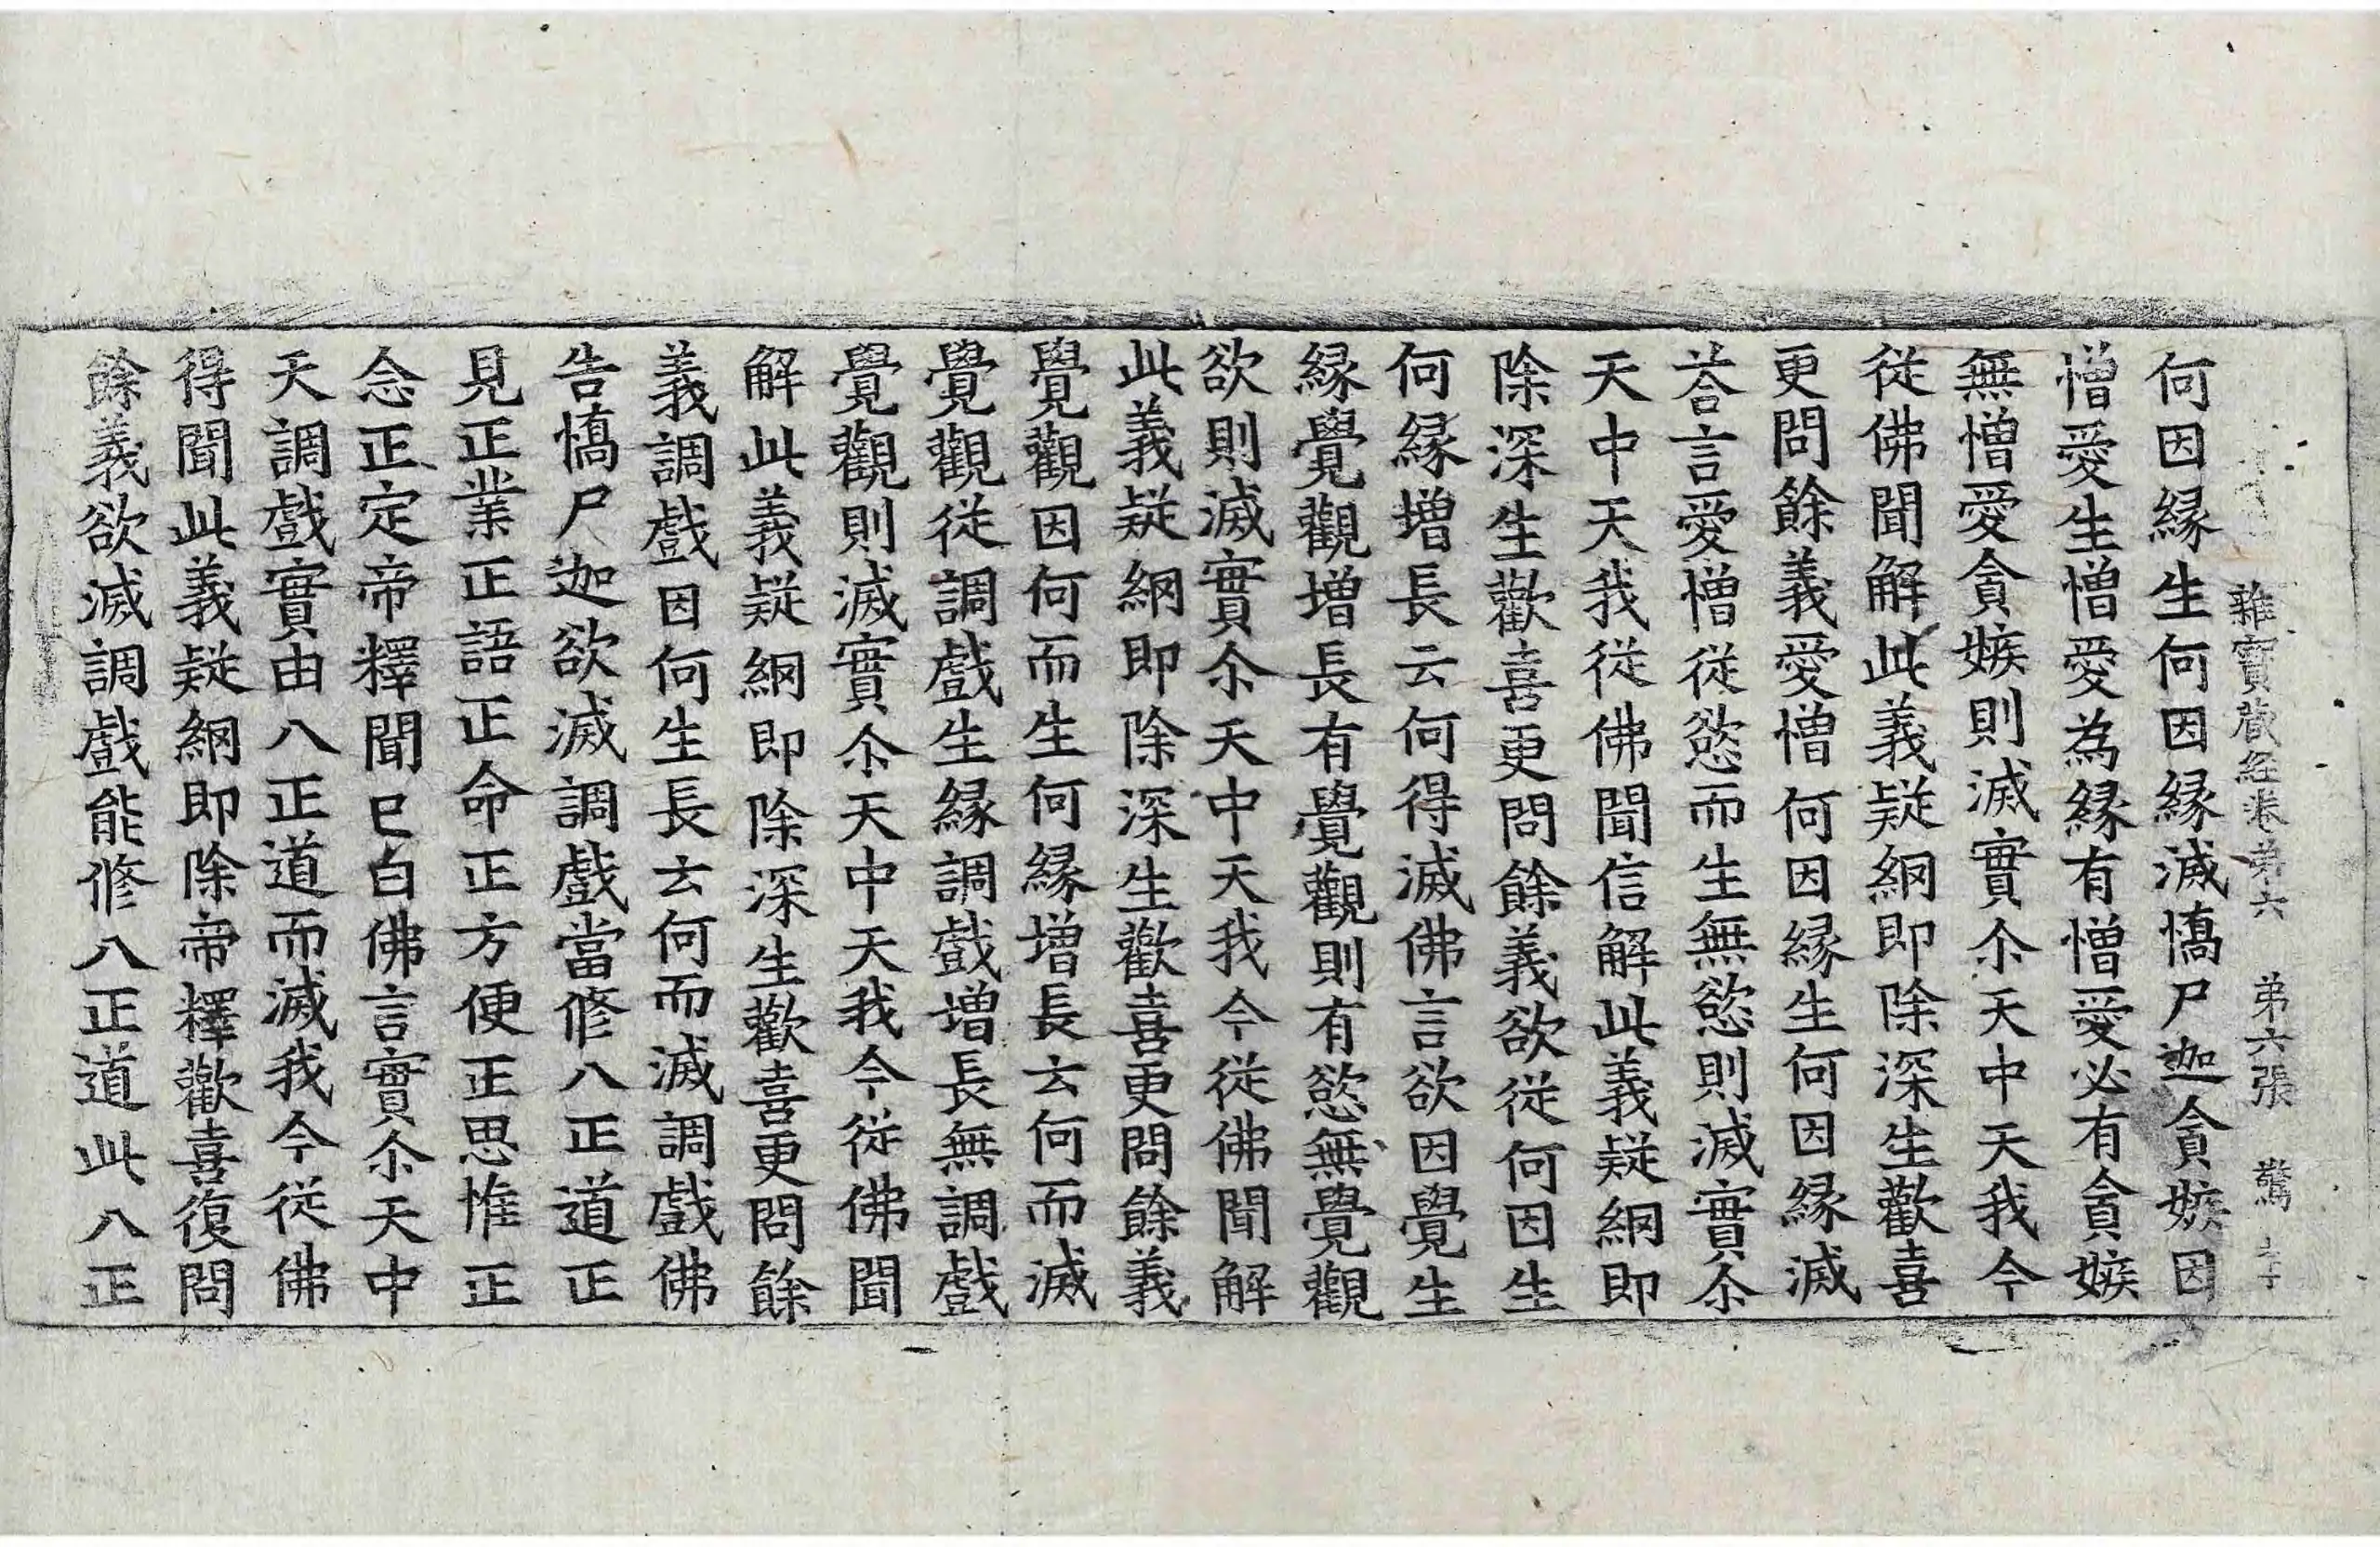 雜寶藏經卷第六 第六張 驚
何因緣生何因緣滅憍尸迦貪嫉因
憎愛生憎愛為緣有憎愛必有貪嫉
無憎愛貪嫉則滅實尒天中天我今
從佛聞解此義疑網即除深生歡喜
更問餘義愛憎何因緣生何因緣滅
荅言愛憎從慾而生無慾則滅實尒
天中天我從佛聞信解此義疑網即
除深生歡喜更問餘義欲從何因生
何緣增長云何得滅佛言欲因覺生
緣覺觀增長有覺觀則有慾無覺觀
欲則滅實尒天中天我今從佛聞解
此義疑網即除深生歡喜更問餘義
覺觀因何而生何緣增長云何而滅
覺觀從調戲生緣調戲增長無調戲
覺觀則滅實尒天中天我今從佛聞
解此義疑網即除深生歡喜更問餘
義調戲因何生長云何而滅調戲佛
告憍尸迦欲滅調戲當修八正道正
見正業正語正命正方便正思惟正
念正定帝釋聞已白佛言實尒天中
天調戲實由八正道而滅我今從佛
得聞此義疑網即除帝釋歡喜復問
餘義欲滅調戲能修八正道此八正